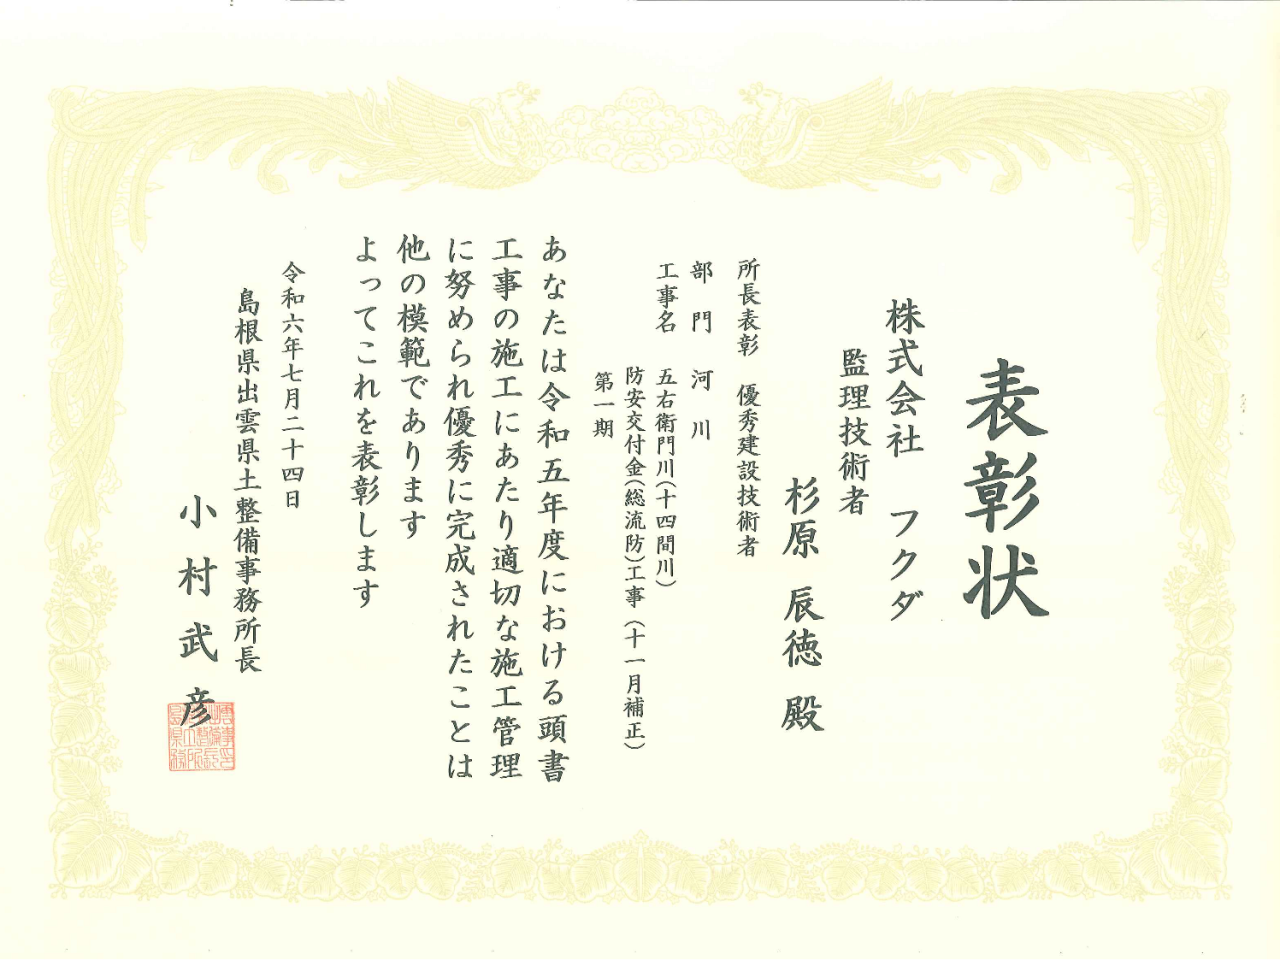 表彰状
株式会社 フクダ
監理技術者
杉原 辰徳 殿
所長表彰 優秀建設技術者
部門 河川
工事名 五右衛門川(十四間川)
防安交付金(総流防)工事(十一月補正)
第一期
あなたは令和五年度における頭書
工事の施工にあたり適切な施工管理
に努められ優秀に完成されたことは
他の模範であります
よってこれを表彰します
令和六年七月二十四日
島根県出雲県土整備事務所長
小村武彦